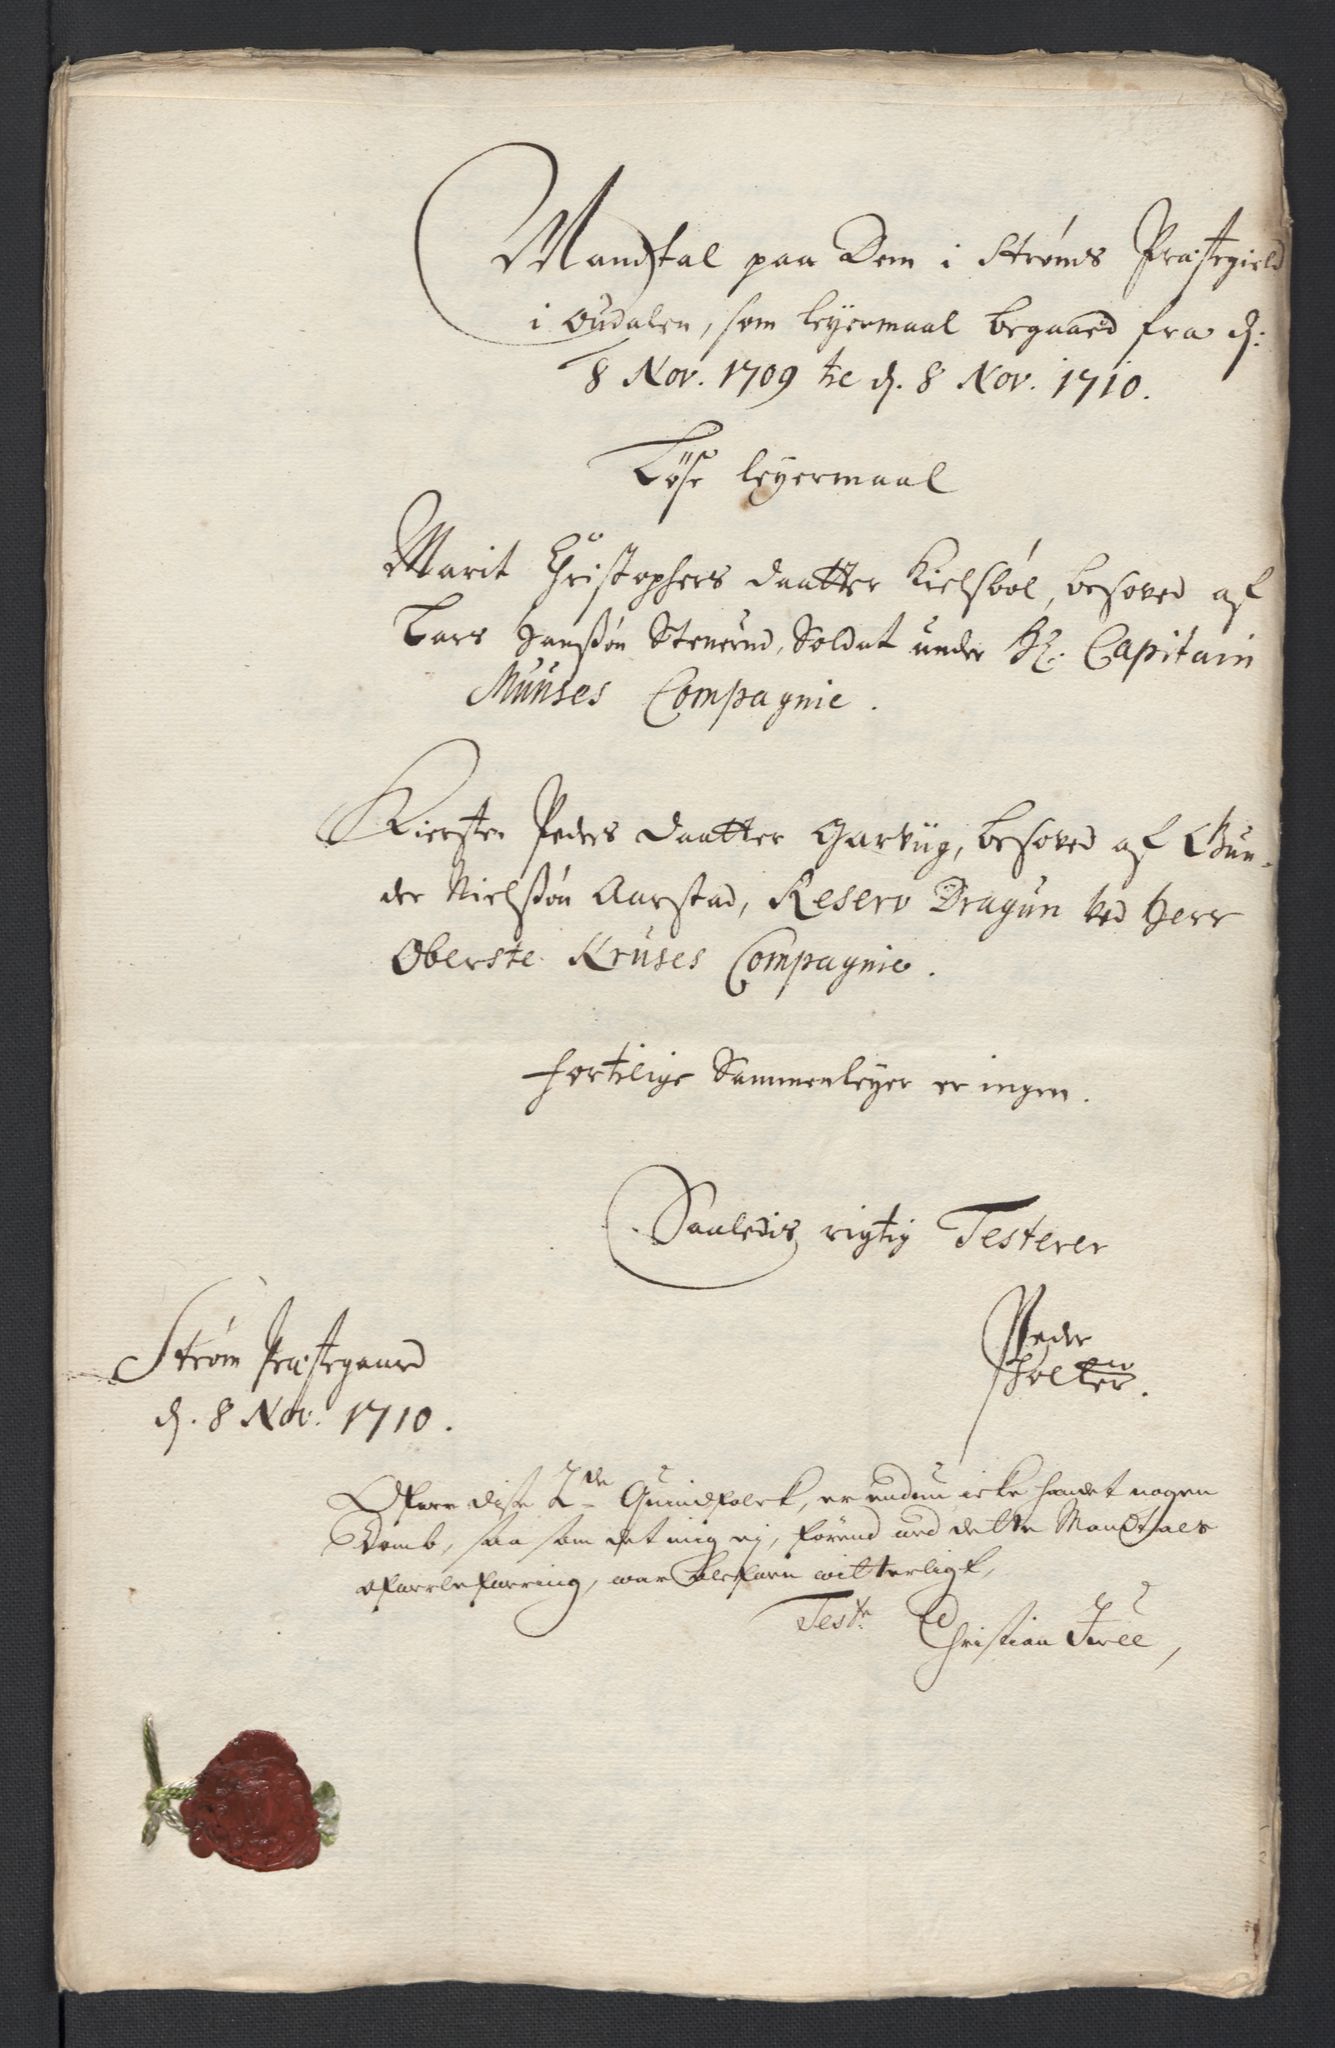 Mandtal paa Dem i Strøms Præstegield
i Oudalen, som leyermaal begaaed fra d:
8 Nov. 1709 til d. 8 Nov. 1710.
Løse leyermaal
Marit Christophers daatter Kielsbøl, besoved af
Lars Hanssøn Stenerud, Soldat under Hr. Capitain
Munses Compagnie.
Kiersten Peders daatter Garviig, besoved af Gun-
der Nielssøn Aarstad, Reserv Dragun ved Herr
Oberste Kruses Compagnie.
fortilige Sammenleyer er ingen.
Saaledis rigtig Testerer
Peder
Holter.
Strøm Præstegaard
d. 8 Nov. 1710.
Ofver disse 2de Quindfolck, er endnu icke holdet nogen
Domb, saa som det mig ej, førend ved dette Mandtals
ofverlefvering, var blefven witterligt,
Test. Christian